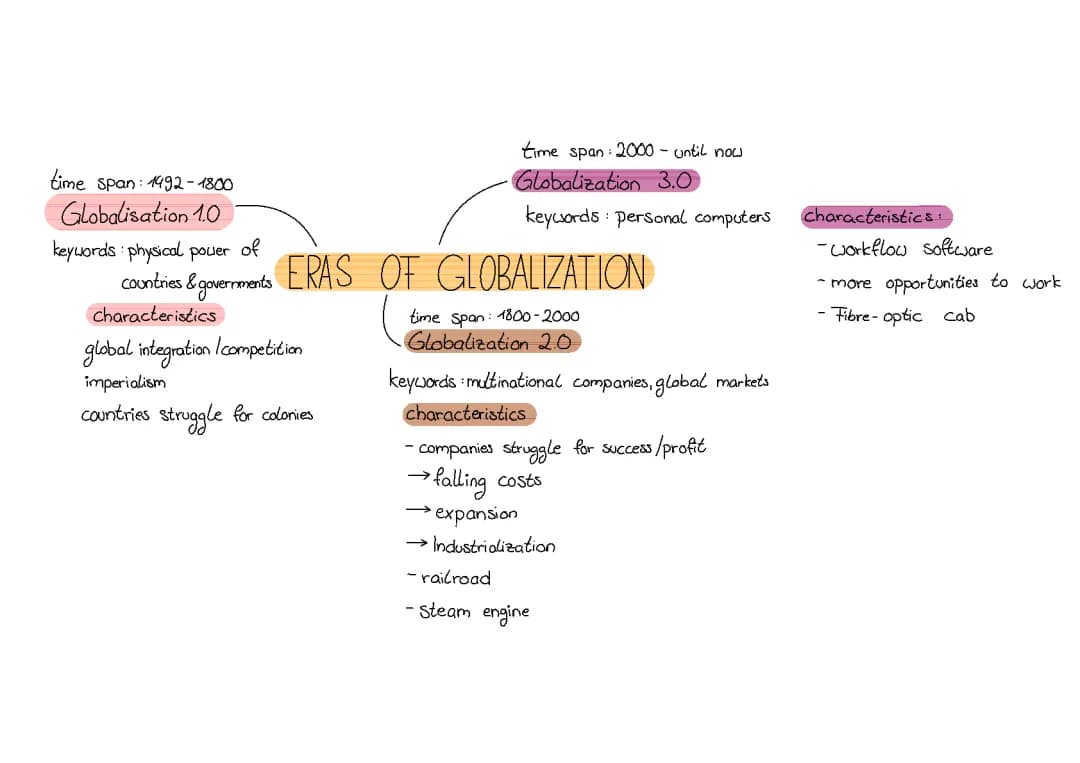 ERAS OF GLOBALIZATION
time span: 1492-1800
Globalisation 1.0
keywords: physical power of
countries & governments
characteristics
global integration/competition
imperialism
countries struggle for colonies
time span: 1800-2000
Globalization 2.0
keywords: multinational companies, global markets
characteristics
- companies struggle for success/profit
→ falling costs
→ expansion
→ Industrialization
- railroad
- Steam engine
time span: 2000 - until now
Globalization 3.0
keywords: personal computers
characteristics:
- workflow software
- more opportunities to work
- Fibre-optic cab